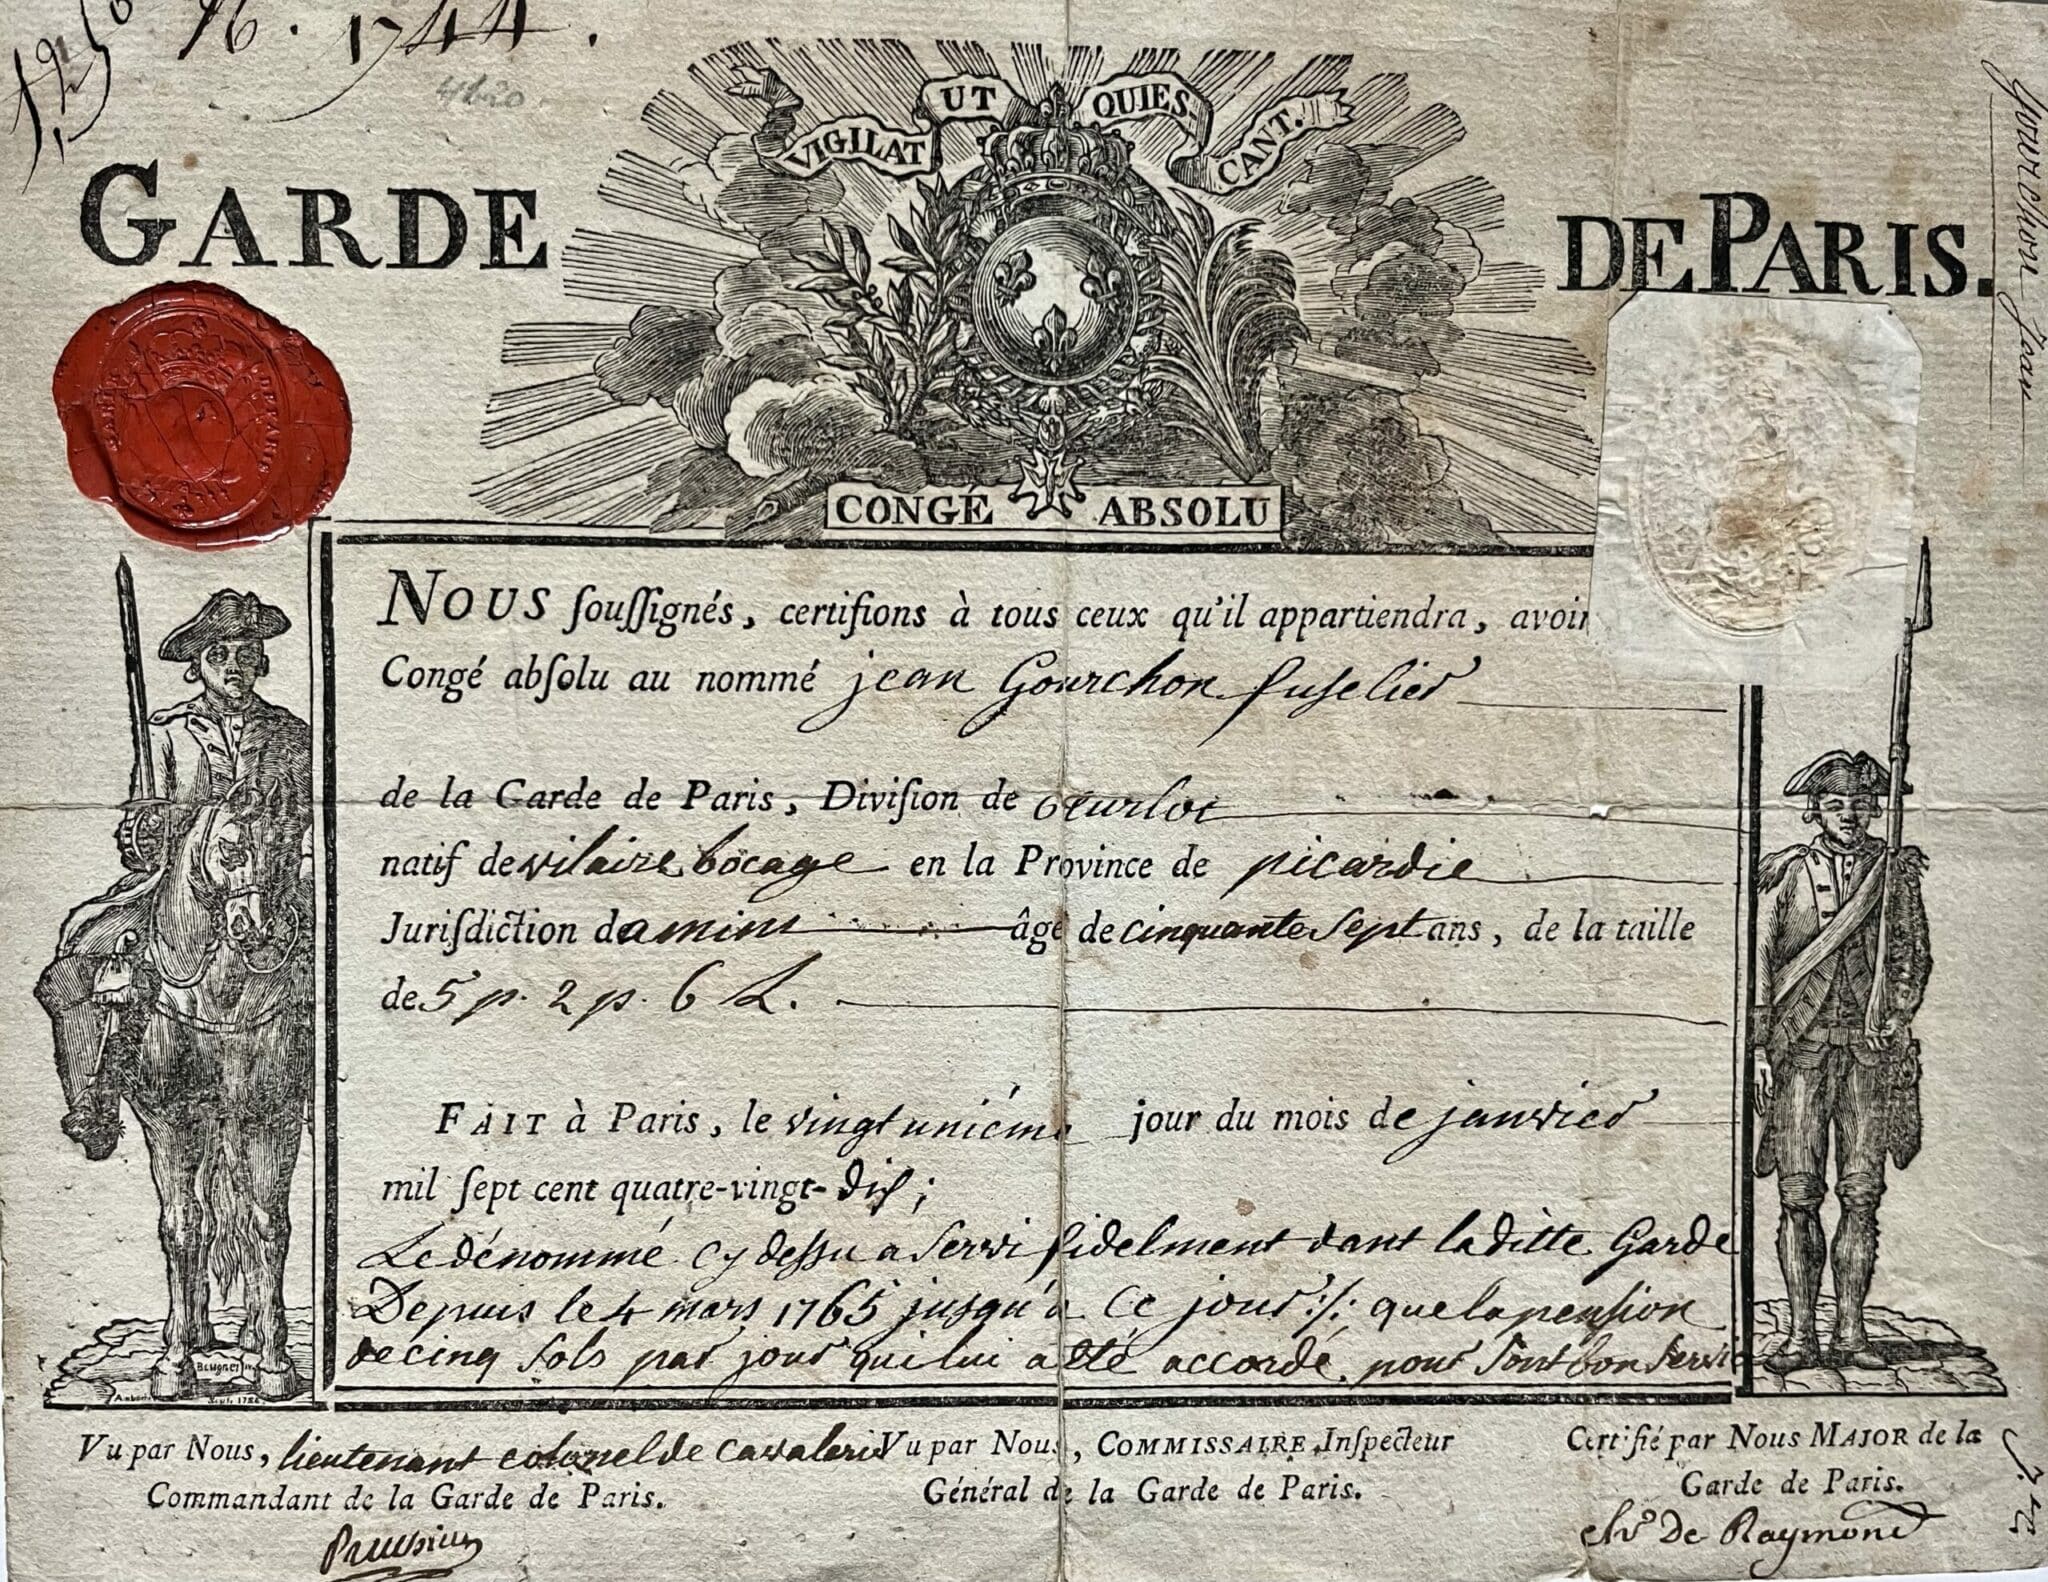 N. 1744.
4620
VIGILAT UT QUIES CANT.
GARDE DE PARIS.
Gourchon Jean
GARDE DE PARIS
CONGÉ ABSOLU
NOUS souſſignés, certifions à tous ceux qu'il appartiendra, avoir
Congé abſolu au nommé jean Gourchon fuselier
de la Garde de Paris, Diviſion de
natif de vilaire bocage en la Province de picardie
Juriſdiction damins âgé de cinquante sept ans, de la taille
de 5 p. 2 p. 6 L.
FAIT à Paris, le vingt uniéme jour du mois de janvier
mil ſept cent quatre-vingt-dix;
Le dénommé cy dessu a servi fidelment dant laditte Garde
Depuis le 4 mars 1765 jusqu'à ce jour :/: que la pension
de cinq sols par jour qui lui a été accordé pour sont bon servi
Beugnet
Vu par Nous, lieutenant colonel de cavalerie
Commandant de la Garde de Paris.
Vu par Nous, COMMISSAIRE Inſpecteur
Général de la Garde de Paris.
Certifié par Nous MAJOR de la
Garde de Paris.
chr De Raymond